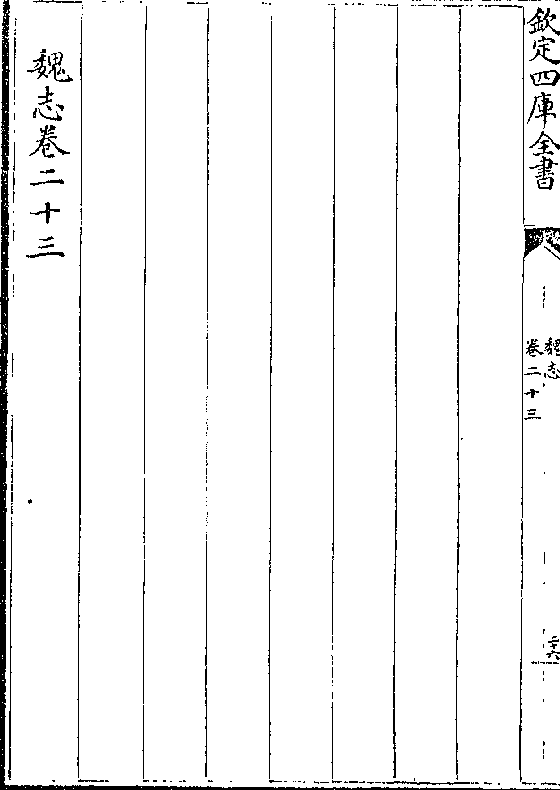 欽定四庫全書
魏志
卷二十三
二十六
魏志卷二十三